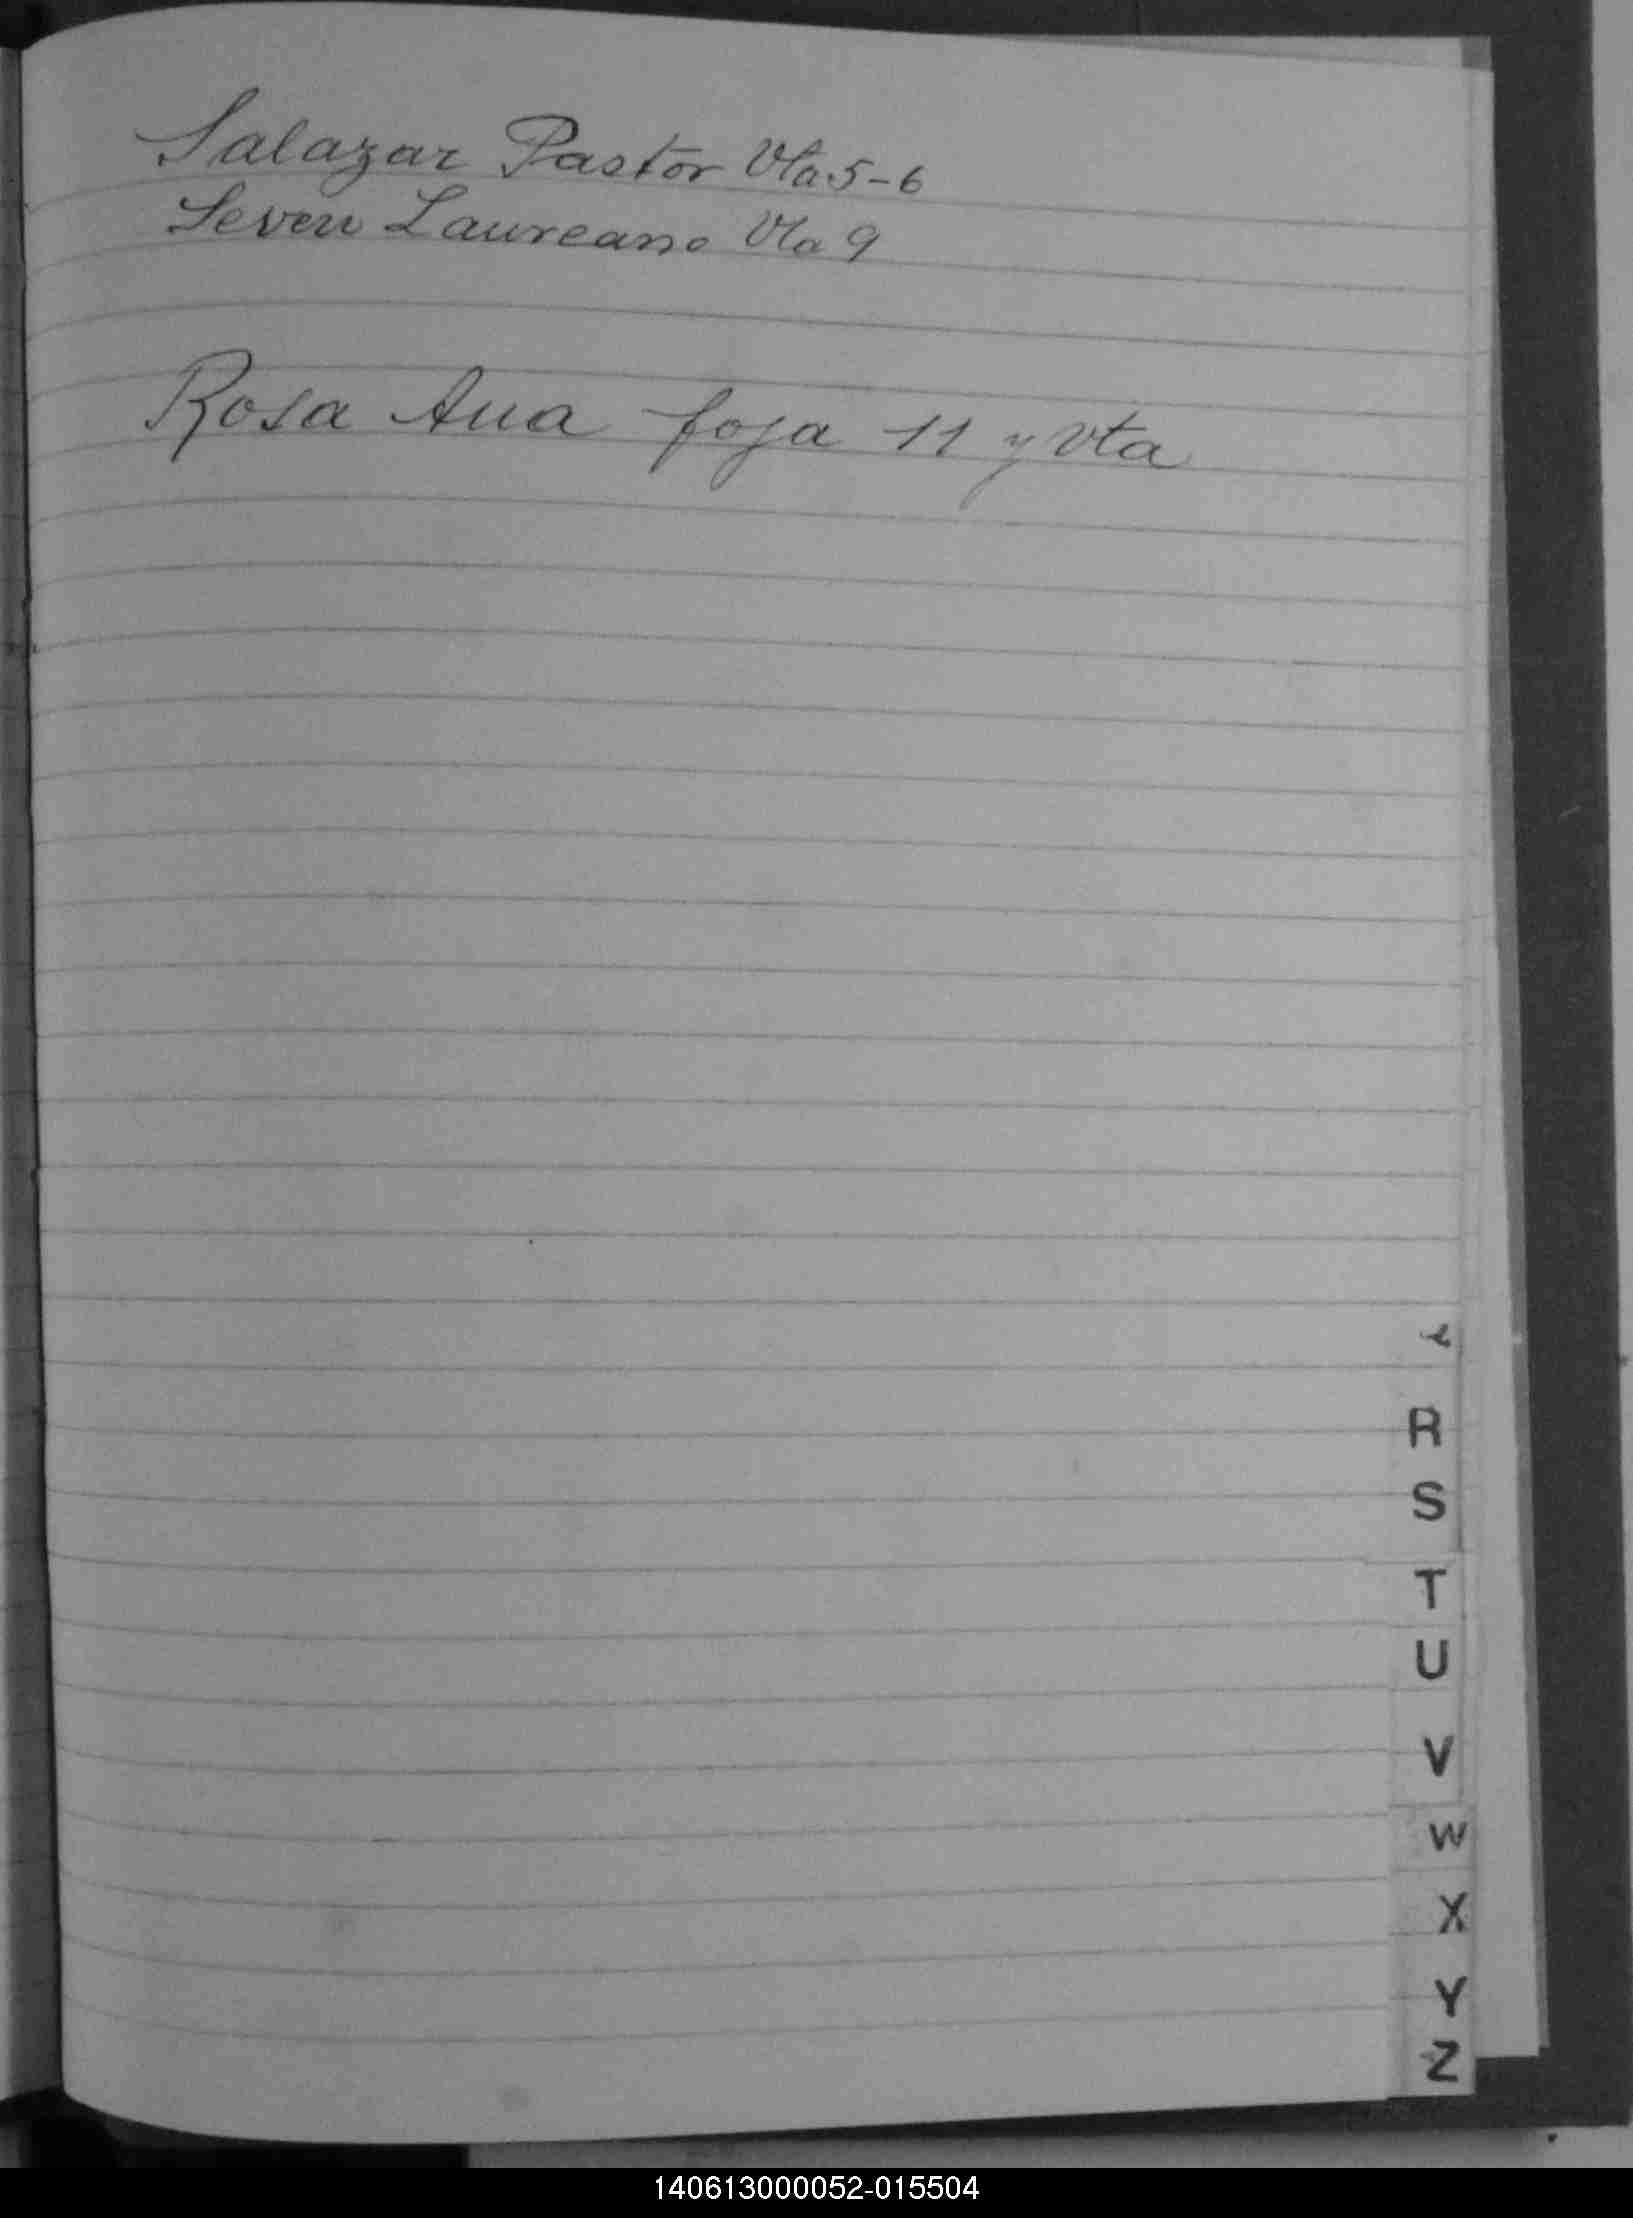 Salazar Pastor Vta 5-6
Severi Laureano Vta 9
Rosa Ana foja 11 y vta
R
S
T
U
V
W
X
Y
Z
140613000052-015504